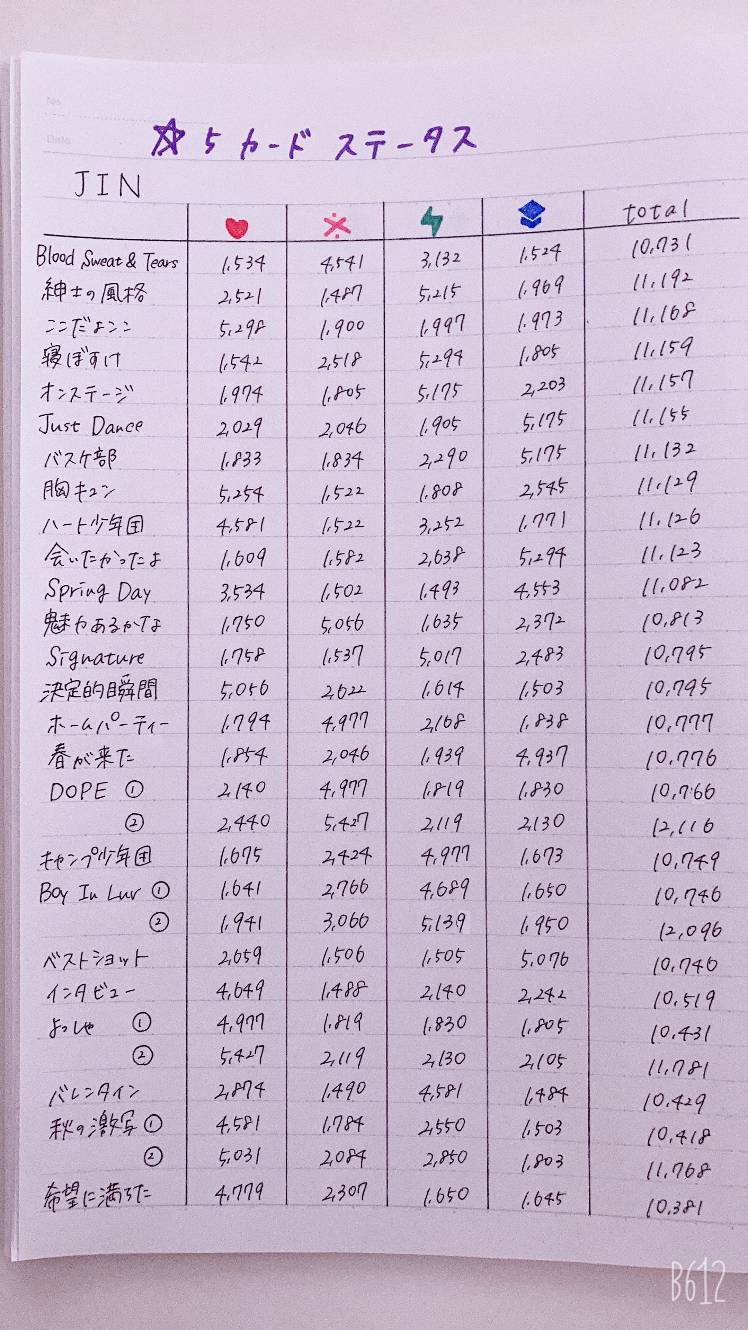 No.
Date
☆5 カード ステータス
JIN
total
Blood Sweat & Tears 1,534 4,541 3,132 1,524 10,731
紳士の風格 2,521 1,487 5,215 1,969 11,192
ここだよンン 5,298 1,900 1,997 1,973 11,168
寝ぼすけ 1,542 2,518 5,294 1,805 11,159
オンステージ 1,974 1,805 5,175 2,203 11,157
Just Dance 2,029 2,046 1,905 5,175 11,155
バスケ部 1,833 1,834 2,290 5,175 11,132
胸キュン 5,254 1,522 1,808 2,545 11,129
ハート少年団 4,581 1,522 3,252 1,771 11,126
会いたかったよ 1,609 1,582 2,638 5,294 11,123
Spring Day 3,534 1,502 1,493 4,553 11,082
魅力あるかな 1,750 5,056 1,635 2,372 10,813
Signature 1,758 1,537 5,017 2,483 10,795
決定的瞬間 5,056 2,622 1,614 1,503 10,795
ホームパーティー 1,794 4,977 2,168 1,838 10,777
春が来た 1,854 2,046 1,939 4,937 10,776
DOPE ① 2,140 4,977 1,819 1,830 10,766
② 2,440 5,427 2,119 2,130 12,116
キャンプ少年団 1,675 2,424 4,977 1,673 10,749
Boy In Luv ① 1,641 2,766 4,689 1,650 10,746
② 1,941 3,066 5,139 1,950 12,096
ベストショット 2,659 1,506 1,505 5,076 10,746
インタビュー 4,649 1,488 2,140 2,242 10,519
よっしゃ ① 4,977 1,819 1,830 1,805 10,431
② 5,427 2,119 2,130 2,105 11,781
バレンタイン 2,874 1,490 4,581 1,484 10,429
秋の激写 ① 4,581 1,784 2,550 1,503 10,418
② 5,031 2,084 2,850 1,803 11,768
希望に満ちた 4,779 2,307 1,650 1,645 10,381
B612